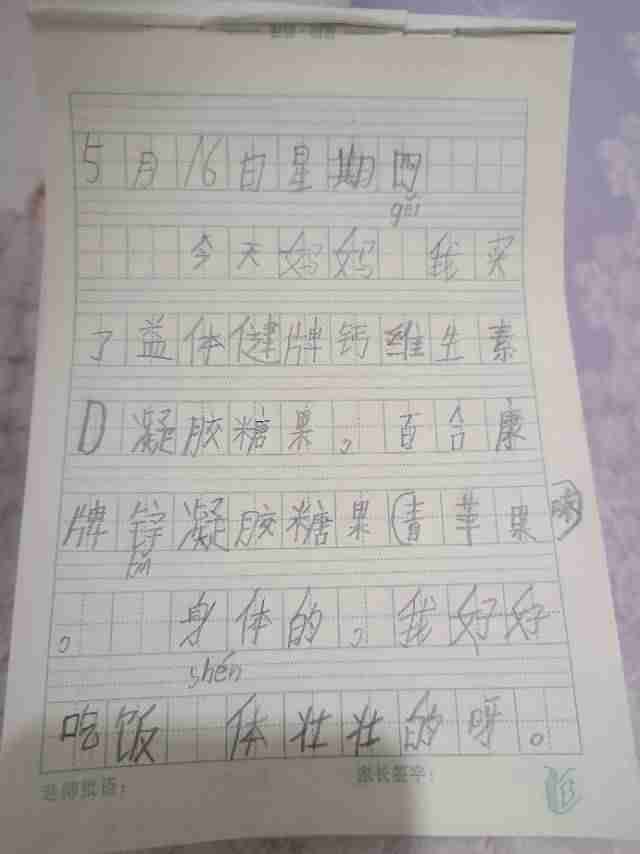 5月16白星期四
gěi
今天妈妈 我买
了益体健牌钙维生素
D凝胶糖果。百合康
牌锌凝胶糖果(青苹果味)
。 身体的。我好好
shén
吃饭 体壮壮的呀。
老师批语: 家长签字: